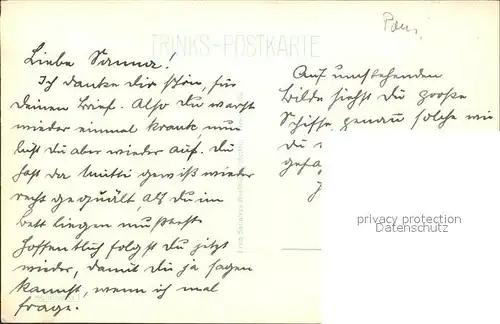 TRINKS-POSTKARTE
Liebe Sanna!
Ich danke dir schön, für
deinen Brief. Also du warst
wieder einmal krank, nun
bist du aber wieder auf. Du
hast da Mutti gewiß wieder
recht gequält, als du im
Bett liegen mußtest.
Hoffentlich folgst du jetzt
wieder, damit du ja sagen
kannst, wenn ich mal
frage.
Auf umstehenden
Bilde siehst du große
Schiffe, genau solche wie
du
privacy protection
Datenschutz